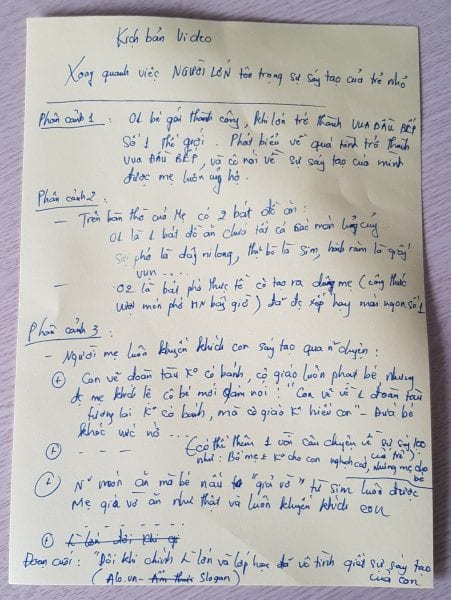 Kịch bản Video
Xoay quanh việc NGƯỜI LỚN tôn trọng sự sáng tạo của trẻ nhỏ
Phân cảnh 1: 01 bé gái thành công, khi lớn trở thành VUA ĐẦU BẾP
Số 1 thế giới. Phát biểu về quá trình trở thành
VUA ĐẦU BẾP, và có nói về sự sáng tạo của mình
được mẹ luôn ủng hộ.
Phân cảnh 2:
- Trên bàn thờ của Mẹ có 2 bát đồ ăn:
01 là 1 bát đồ ăn chứa tất cả
sợi phở là dây ni lông, thịt bò là sim, hành răm là giấy
vụn....
- 02 là bát phở thực tế cô tạo ra dâng mẹ (công thức
món phở HN bây giờ) đã đc xếp hạng món ngon số 1
Phân cảnh 3:
- Người mẹ luôn khuyến khích con sáng tạo qua n~ chuyện:
+ Con vẽ đoàn tàu K° có bánh, cô giáo luôn phạt bé, nhưng
đc mẹ khích lệ cô bé mới dám nói: "Con vẽ về 1 đoàn tàu
tương lai K° có bánh, mà cô giáo K° hiểu con" - Đứa bé
khóc nức nở...
+ - - - (có thể thêm 1 vài câu chuyện về sự sáng tạo
của trẻ)
như: Bố mẹ K° cho con nghịch cát, nhưng mẹ cho
bé
+ N~ món ăn mà bé nấu "giả vờ" từ sim luôn được
Mẹ giả vờ ăn như thật và luôn khuyến khích con
- - - - - -
+ lớn đôi khi
Đoạn cuối: "Đôi khi chính lớn và lớp học đã vô tình giết sự sáng tạo
của con
(Alo.vn - Slogan)